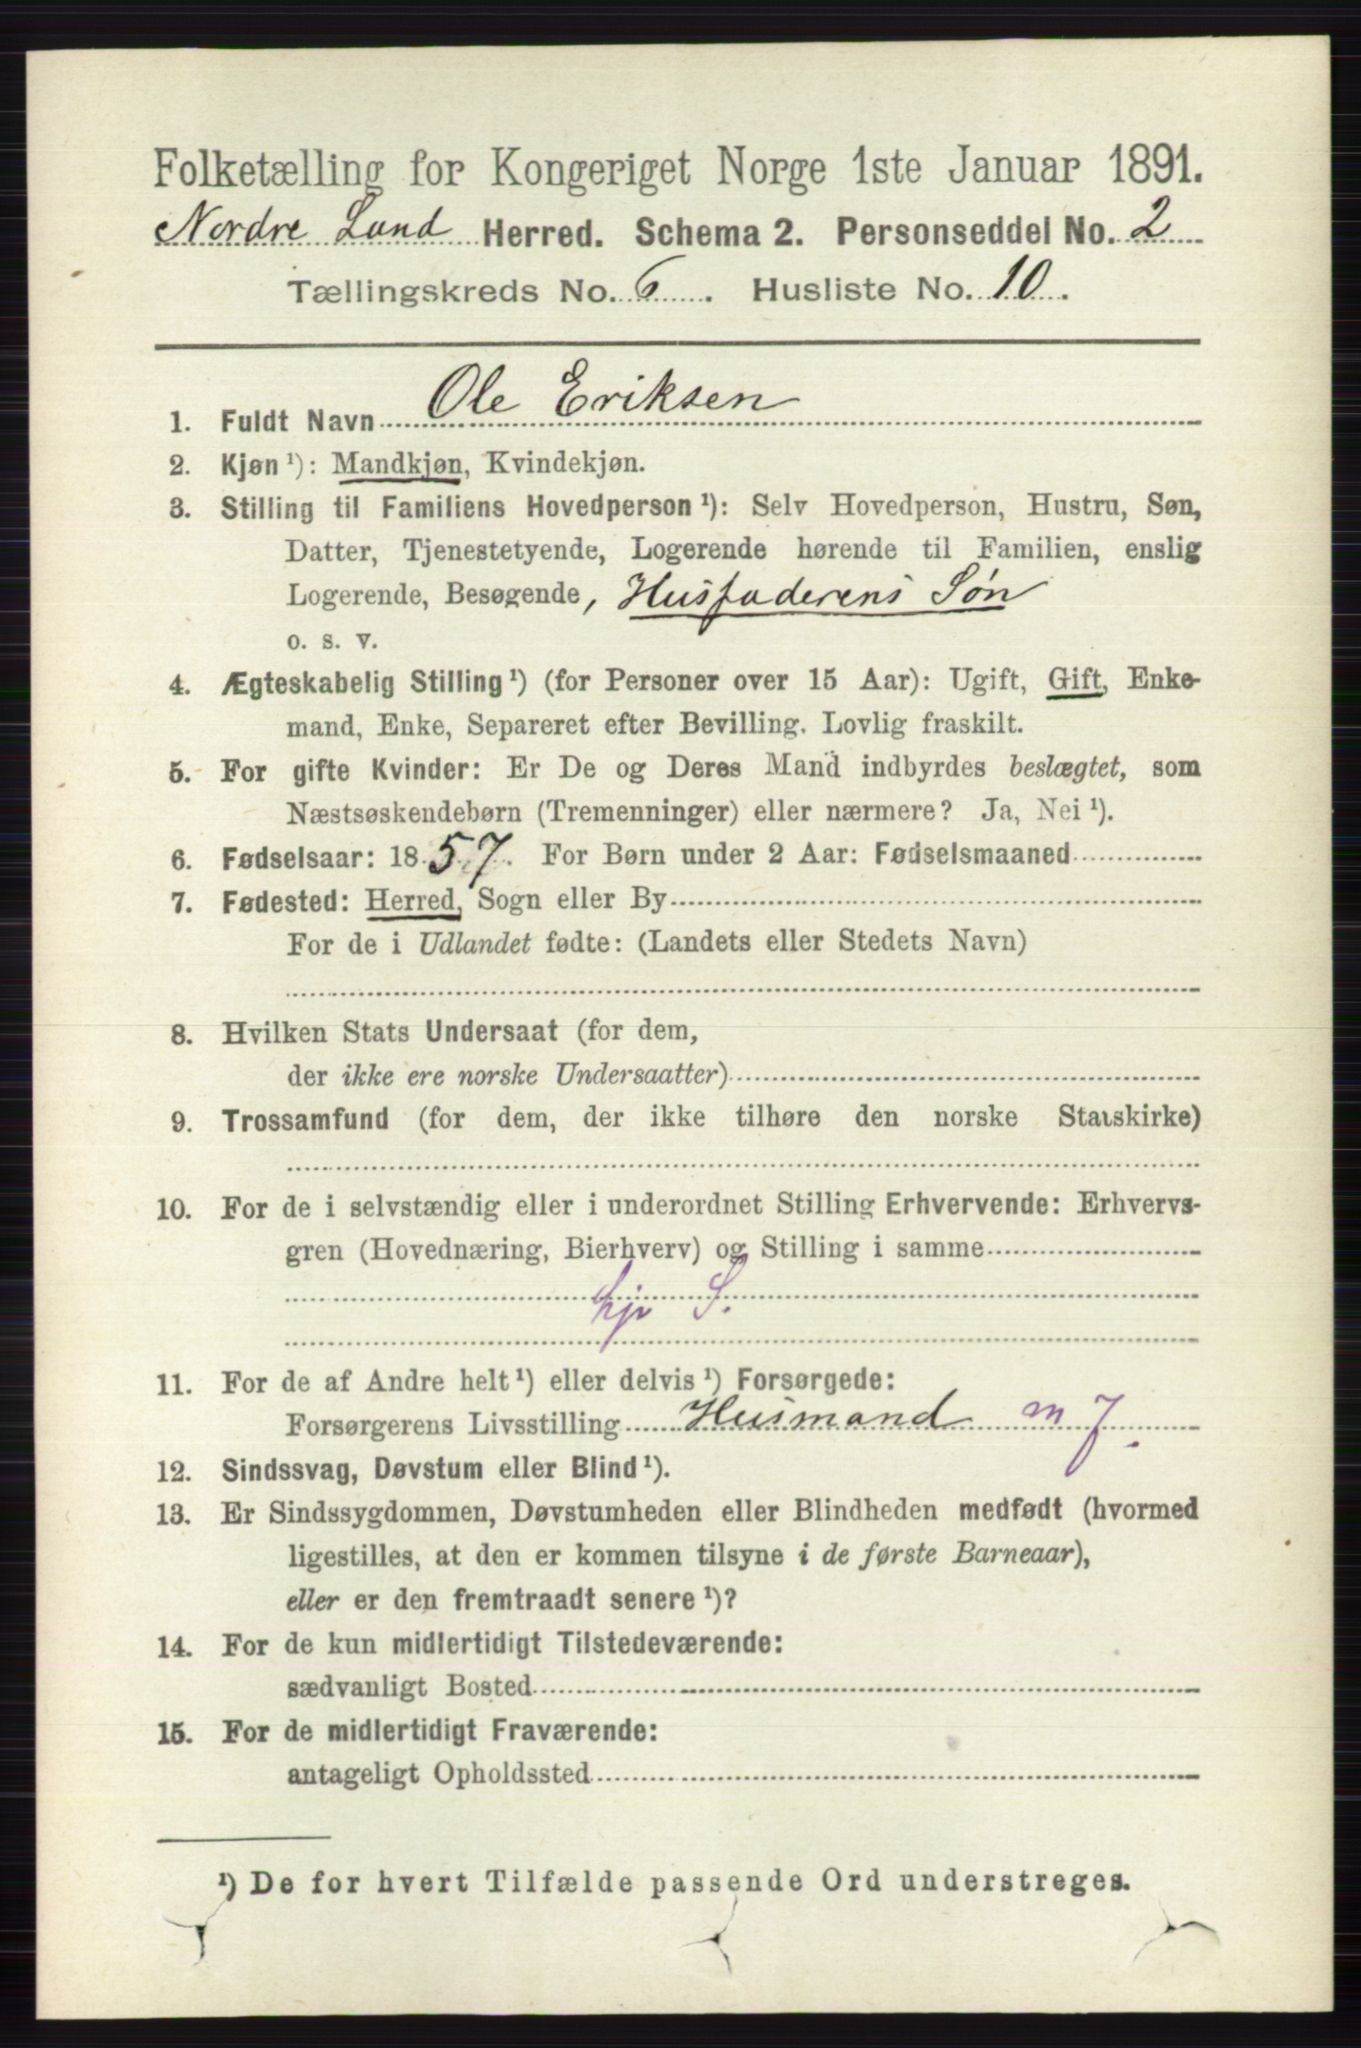 Folketælling for Kongeriget Norge 1ste Januar 1891.
Nordre Land Herred. Schema 2. Personseddel No. 2
Tællingskreds No. 6. Husliste No. 10.
1. Fuldt Navn Ole Eriksen
2. Kjøn ¹): Mandkjøn, Kvindekjøn.
3. Stilling til Familiens Hovedperson ¹): Selv Hovedperson, Hustru, Søn,
Datter, Tjenestetyende, Logerende hørende til Familien, enslig
Logerende, Besøgende, Husfaderens Søn
o. s. v.
4. Ægteskabelig Stilling ¹) (for Personer over 15 Aar): Ugift, Gift, Enke-
mand, Enke, Separeret efter Bevilling. Lovlig fraskilt.
5. For gifte Kvinder: Er De og Deres Mand indbyrdes beslægtet, som
Næstsøskendebørn (Tremenninger) eller nærmere? Ja, Nei ¹).
6. Fødselsaar: 1857. For Børn under 2 Aar: Fødselsmaaned
7. Fødested: Herred, Sogn eller By
For de i Udlandet fødte: (Landets eller Stedets Navn)
8. Hvilken Stats Undersaat (for dem,
der ikke ere norske Undersaatter)
9. Trossamfund (for dem, der ikke tilhøre den norske Statskirke)
10. For de i selvstændig eller i underordnet Stilling Erhvervende: Erhvervs-
gren (Hovednæring, Bierhverv) og Stilling i samme
hjv S.
11. For de af Andre helt ¹) eller delvis ¹) Forsørgede:
Forsørgerens Livsstilling Husmand m J.
12. Sindssvag, Døvstum eller Blind ¹).
13. Er Sindssygdommen, Døvstumheden eller Blindheden medfødt (hvormed
ligestilles, at den er kommen tilsyne i de første Barneaar),
eller er den fremtraadt senere ¹)?
14. For de kun midlertidigt Tilstedeværende:
sædvanligt Bosted
15. For de midlertidigt Fraværende:
antageligt Opholdssted
¹) De for hvert Tilfælde passende Ord understreges.